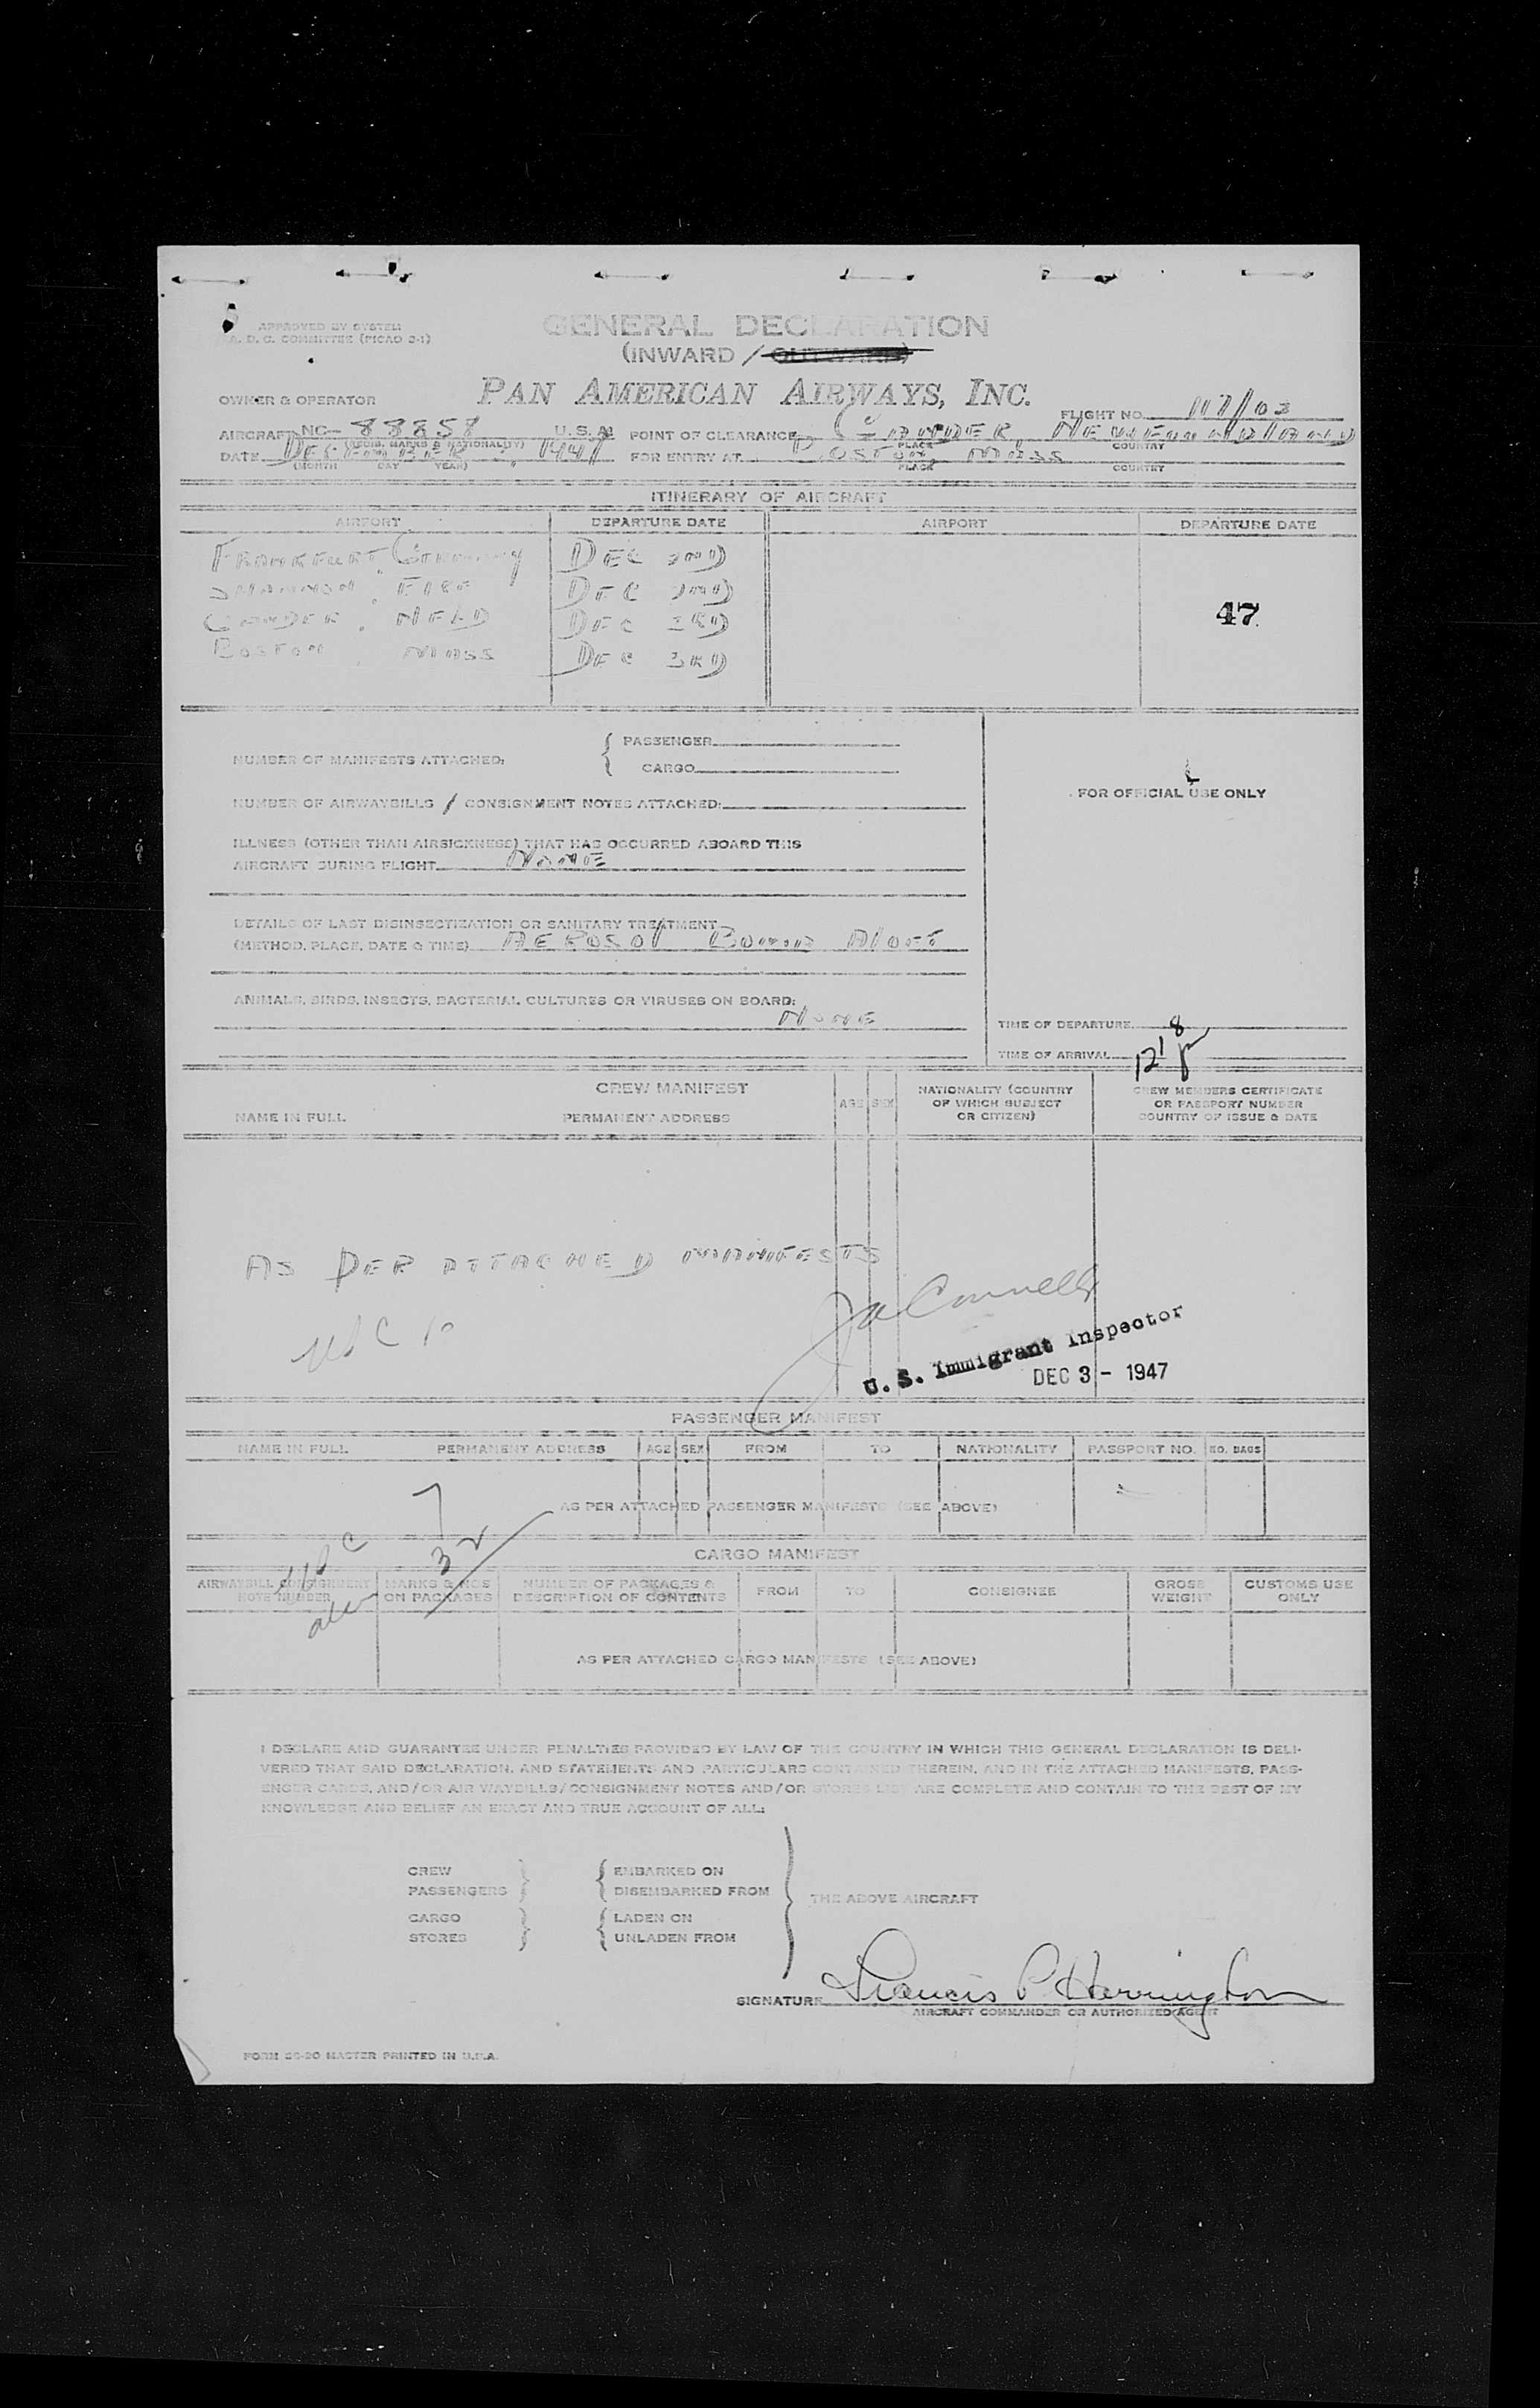 APPROVED BY SYSTEM
A. D. C. COMMITTEE (PICAO 2-1)
GENERAL DECLARATION
(INWARD / OUTWARD)
OWNER & OPERATOR
PAN AMERICAN AIRWAYS, INC.
FLIGHT NO. 117/03
AIRCRAFT NC- 88858 U.S.A. POINT OF CLEARANCE GANDER, NEWFOUNDLAND
(REGIS. MARKS & NATIONALITY) PLACE COUNTRY
DATE DECEMBER 3, 1947 FOR ENTRY AT BOSTON, MASS
(MONTH DAY YEAR) PLACE COUNTRY
ITINERARY OF AIRCRAFT
AIRPORT DEPARTURE DATE AIRPORT DEPARTURE DATE
FRANKFURT, Germany DEC 2ND
SHANNON, EIRE DEC 2ND
GANDER, NFLD DEC 3RD
BOSTON, MASS DEC 3RD
47
NUMBER OF MANIFESTS ATTACHED: { PASSENGER
CARGO
FOR OFFICIAL USE ONLY
NUMBER OF AIRWAYBILLS / CONSIGNMENT NOTES ATTACHED:
ILLNESS (OTHER THAN AIRSICKNESS) THAT HAS OCCURRED ABOARD THIS
AIRCRAFT DURING FLIGHT NONE
DETAILS OF LAST DISINSECTIZATION OR SANITARY TREATMENT
(METHOD, PLACE, DATE & TIME) AEROSOL BOMB ALOFT
ANIMALS, BIRDS, INSECTS, BACTERIAL CULTURES OR VIRUSES ON BOARD:
NONE
TIME OF DEPARTURE
TIME OF ARRIVAL 1218 pm
CREW MANIFEST
NAME IN FULL PERMANENT ADDRESS AGE SEX NATIONALITY (COUNTRY OF WHICH SUBJECT OR CITIZEN) CREW MEMBERS CERTIFICATE OR PASSPORT NUMBER COUNTRY OF ISSUE & DATE
AS PER ATTACHED MANIFESTS
USC 10
J A Connelly
U. S. Immigrant Inspector
DEC 3 - 1947
PASSENGER MANIFEST
NAME IN FULL PERMANENT ADDRESS AGE SEX FROM TO NATIONALITY PASSPORT NO. NO. BAGS
AS PER ATTACHED PASSENGER MANIFESTS (SEE ABOVE)
USC 7
alien 32
CARGO MANIFEST
AIRWAYBILL CONSIGNMENT NOTE NUMBER MARKS & NOS ON PACKAGES NUMBER OF PACKAGES & DESCRIPTION OF CONTENTS FROM TO CONSIGNEE GROSS WEIGHT CUSTOMS USE ONLY
AS PER ATTACHED CARGO MANIFESTS (SEE ABOVE)
I DECLARE AND GUARANTEE UNDER PENALTIES PROVIDED BY LAW OF THE COUNTRY IN WHICH THIS GENERAL DECLARATION IS DELI-
VERED THAT SAID DECLARATION, AND STATEMENTS AND PARTICULARS CONTAINED THEREIN, AND IN THE ATTACHED MANIFESTS, PASS-
ENGER CARDS, AND/OR AIR WAYBILLS/CONSIGNMENT NOTES AND/OR STORES LIST ARE COMPLETE AND CONTAIN TO THE BEST OF MY
KNOWLEDGE AND BELIEF AN EXACT AND TRUE ACCOUNT OF ALL:
CREW } { EMBARKED ON
PASSENGERS DISEMBARKED FROM } THE ABOVE AIRCRAFT
CARGO } { LADEN ON
STORES UNLADEN FROM
SIGNATURE Francis P. Herrington
AIRCRAFT COMMANDER OR AUTHORIZED AGENT
MASTER PRINTED IN U.S.A.